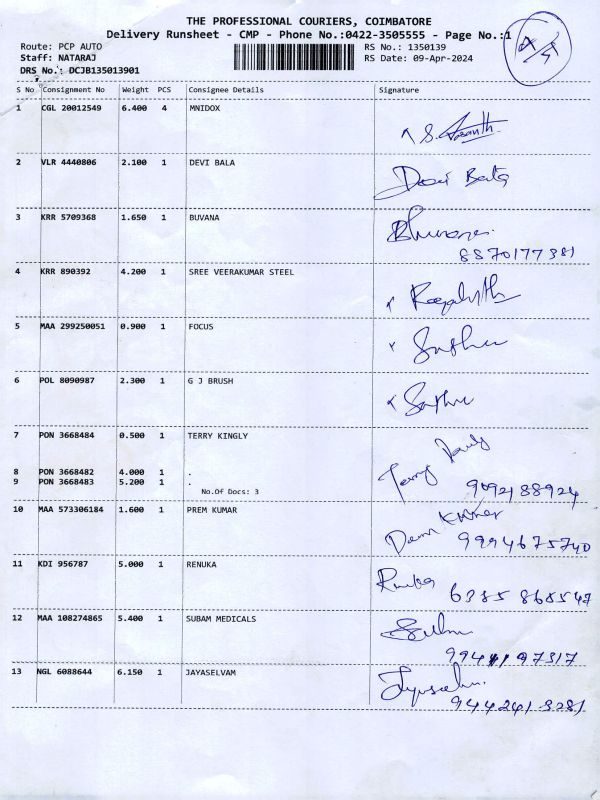 THE PROFESSIONAL COURIERS, COIMBATORE
Delivery Runsheet - CMP - Phone No.:0422-3505555 - Page No.:1
Route: PCP AUTO RS No.: 1350139
Staff: NATARAJ RS Date: 09-Apr-2024
DRS No.: DCJB135013901
S No Consignment No Weight PCS Consignee Details Signature
1 CGL 20012549 6.400 4 MNIDOX
2 VLR 4440806 2.100 1 DEVI BALA
Devi Bala
3 KRR 5709368 1.650 1 BUVANA
8870177381
4 KRR 890392 4.200 1 SREE VEERAKUMAR STEEL
5 MAA 299250051 0.900 1 FOCUS
6 POL 8090987 2.300 1 G J BRUSH
7 PON 3668484 0.500 1 TERRY KINGLY
8 PON 3668482 4.000 1 .
9 PON 3668483 5.200 1 .
No.Of Docs: 3
9092188924
10 MAA 573306184 1.600 1 PREM KUMAR
9994675740
11 KDI 956787 5.000 1 RENUKA
6385 868547
12 MAA 108274865 5.400 1 SUBAM MEDICALS
13 NGL 6088644 6.150 1 JAYASELVAM